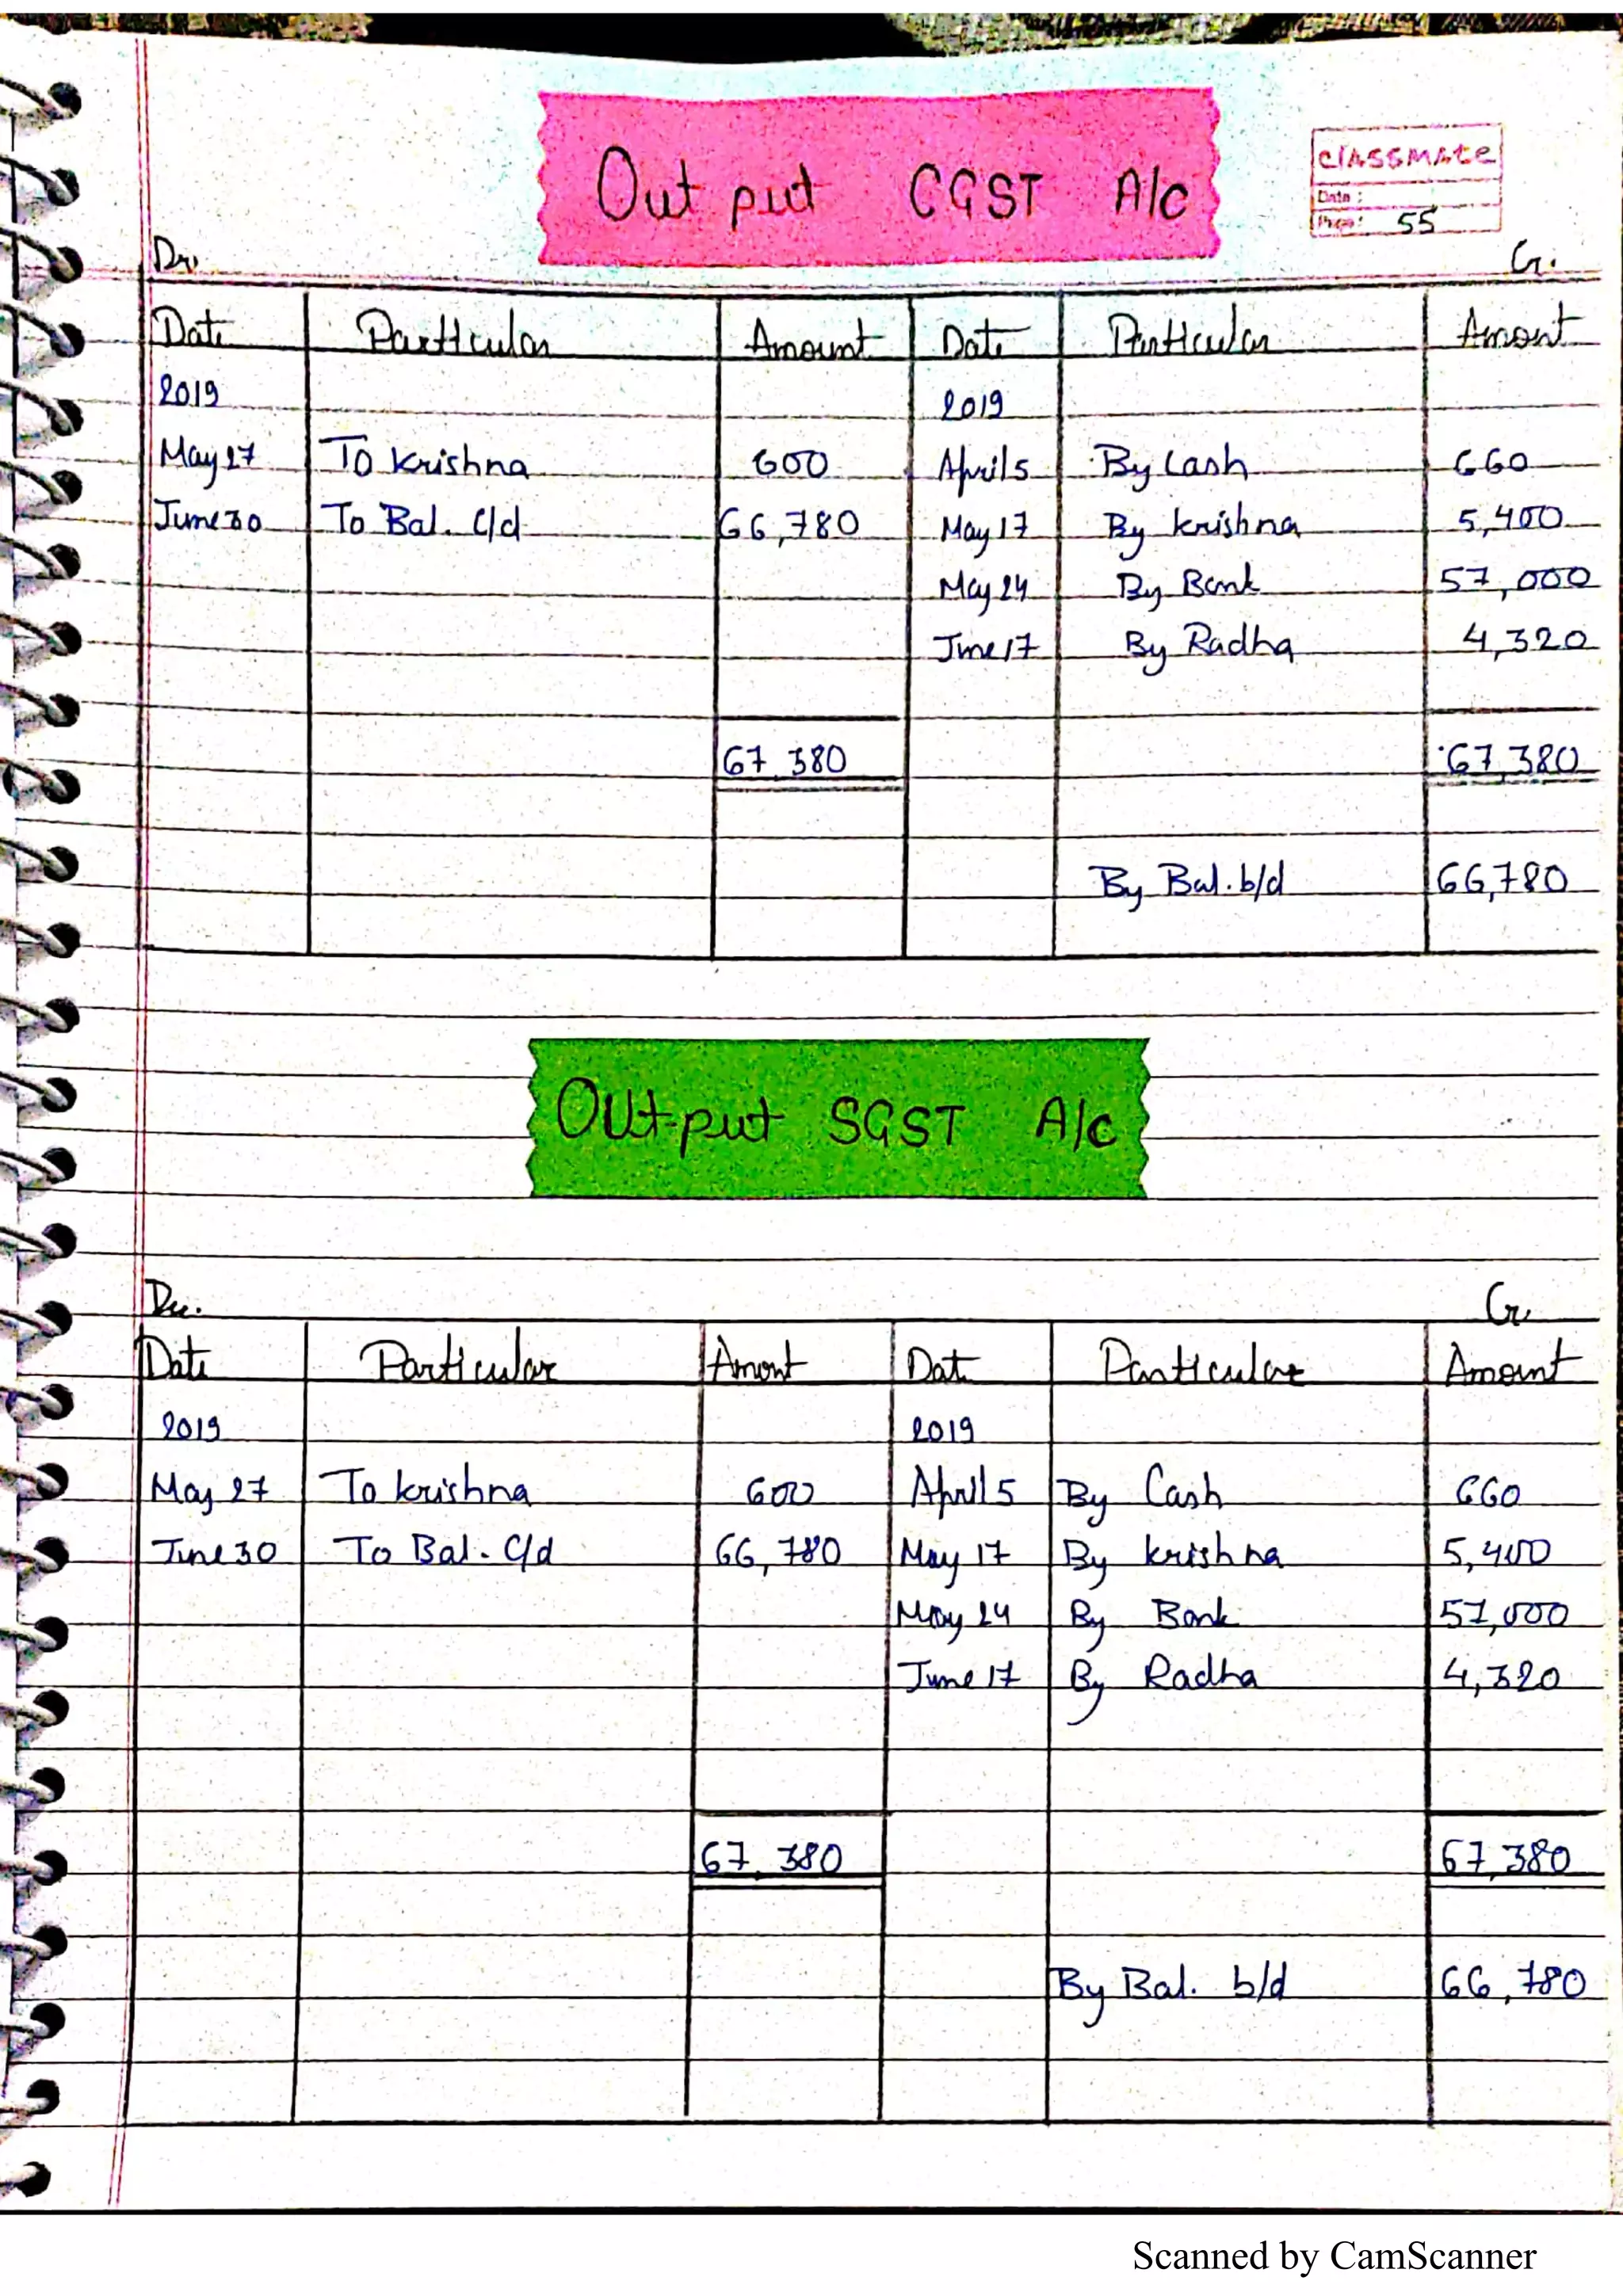 Output CGST A/c
classmate
Date :
Page : 55
Dr. Cr.
Date Particular Amount Date Particular Amount
2019 2019
May 27 To Krishna 600 April 5 By Cash 660
June 30 To Bal. C/d 66,780 May 17 By Krishna 5,400
May 24 By Bank 57,000
June 17 By Radha 4,320
67,380 67,380
By Bal. b/d 66,780
Output SGST A/c
Dr. Cr.
Date Particular Amount Date Particular Amount
2019 2019
May 27 To Krishna 600 April 5 By Cash 660
June 30 To Bal. C/d 66,780 May 17 By Krishna 5,400
May 24 By Bank 57,000
June 17 By Radha 4,320
67,380 67,380
By Bal. b/d 66,780
Scanned by CamScanner